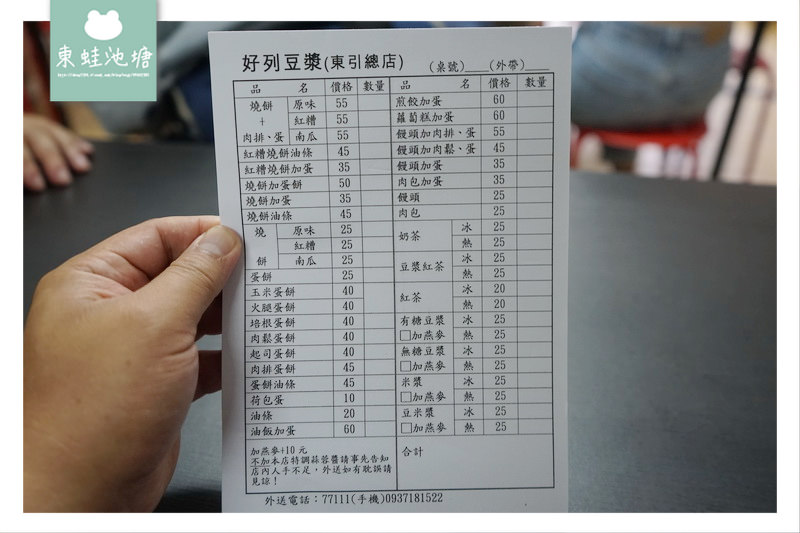 東蛙池塘
好列豆漿(東引總店) (桌號) (外帶)
品 名 價格 數量
燒餅 + 肉排、蛋 原味 55
紅糟 55
南瓜 55
紅糟燒餅油條 45
紅糟燒餅加蛋 35
燒餅加蛋餅 50
燒餅加蛋 35
燒餅油條 45
燒餅 原味 25
紅糟 25
南瓜 25
蛋餅 25
玉米蛋餅 40
火腿蛋餅 40
培根蛋餅 40
肉鬆蛋餅 40
起司蛋餅 40
肉排蛋餅 45
蛋餅油條 45
荷包蛋 10
油條 20
油飯加蛋 60
加燕麥+10元
不加本店特調蒜蓉醬請事先告知
店內人手不足，外送如有耽誤請
見諒！
品 名 價格 數量
煎餃加蛋 60
蘿蔔糕加蛋 60
饅頭加肉排、蛋 55
饅頭加肉鬆、蛋 45
饅頭加蛋 35
肉包加蛋 35
饅頭 25
肉包 25
奶茶 冰 25
熱 25
豆漿紅茶 冰 25
熱 25
紅茶 冰 20
熱 20
有糖豆漿 冰 25
□加燕麥 熱 25
無糖豆漿 冰 25
□加燕麥 熱 25
米漿 冰 25
□加燕麥 熱 25
豆米漿 冰 25
□加燕麥 熱 25
合計
外送電話：77111(手機)0937181522